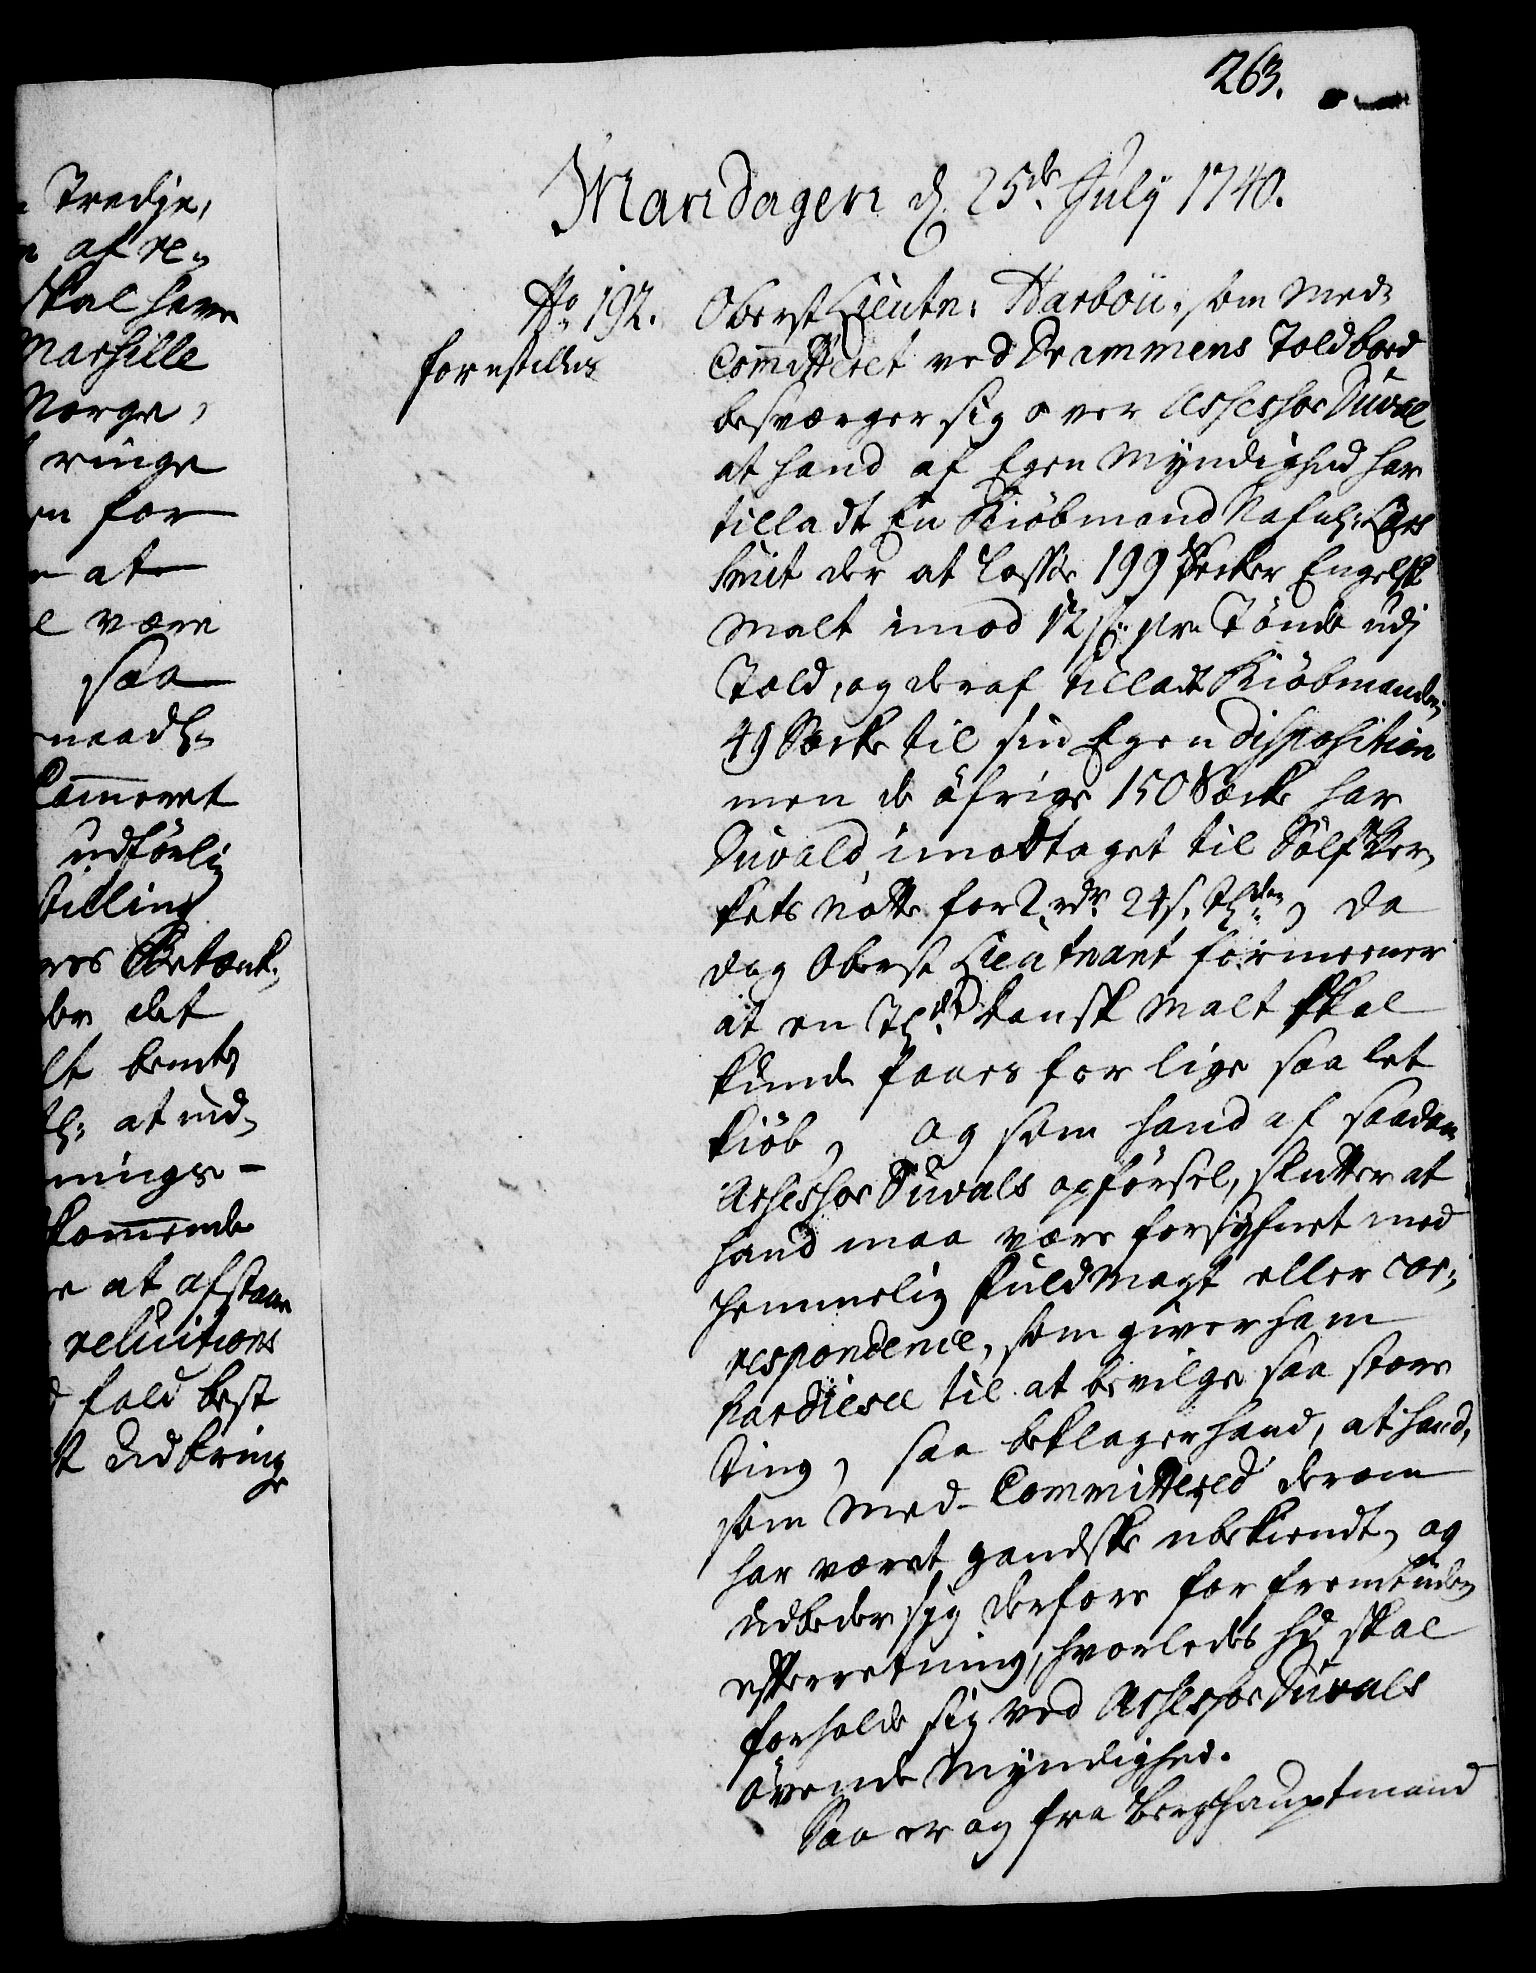 263.
Mandagen d. 25de July 1740.
No 192.
forestilles
Oberst Lieutn: Harboü, som Med-
Committeret ved Drammens Toldboed
besværger sig over Assessor Duval
at hand af Egen Myndighed har
tilladt En Kiöbmand Nafnl:
der at losse 199 Sekker Engelsk
Malt imod 12 s: pr Tönde udj
Told, og deraf tilladt Kiöbmanden
49 Sekke til sin Egen disposition
men de öfrige 150 Sække har
Duvald imottaget til Sölfver-
kets Nötte for 2 rdr. 24 s. Tdn, da
dog Oberst Lieutnant formeener
at en Td. dansk Malt skal
kunde faaes for lige saa let
kiöb, og som hand af saadan
Assessor Duvals opförsel, slutter at
hand maa være forsyhnet med
hemmelig fuldmagt eller cor-
respondence, som giver ham
hardiesse til at bevilge saa store
ting, saa beklager hand, at hand,
som Med-Committered derom
har været gandske ubekiendt, og
udbeder sig derfore for fremtiden
efterretning, hvorledes hd skal
forholde sig ved Assessor Duvals
övende Myndighed.
Saa er og fra Berghauptmand
Tredje,
af re-
skal have
Marsille
Norge,
ringe
for
at
være
saa
Cammeret
udförlig
stilling
Betænk-
det
bemte
at ind-
nings-
kommende
at afstaae
reluitions
fald best
udbringe